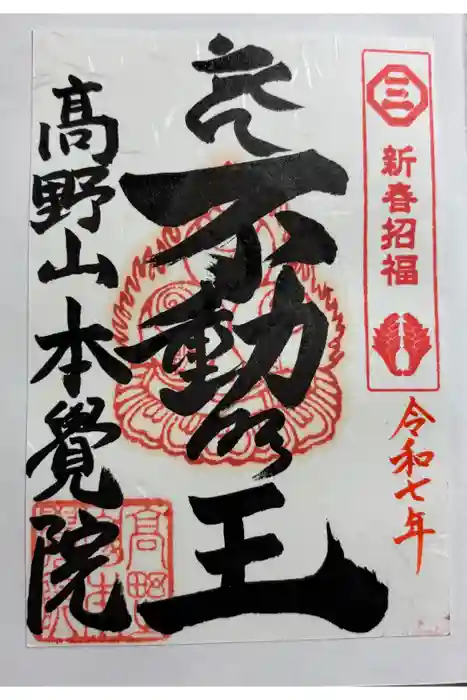 三
新春招福
令和七年
不動明王
高野山本覺院